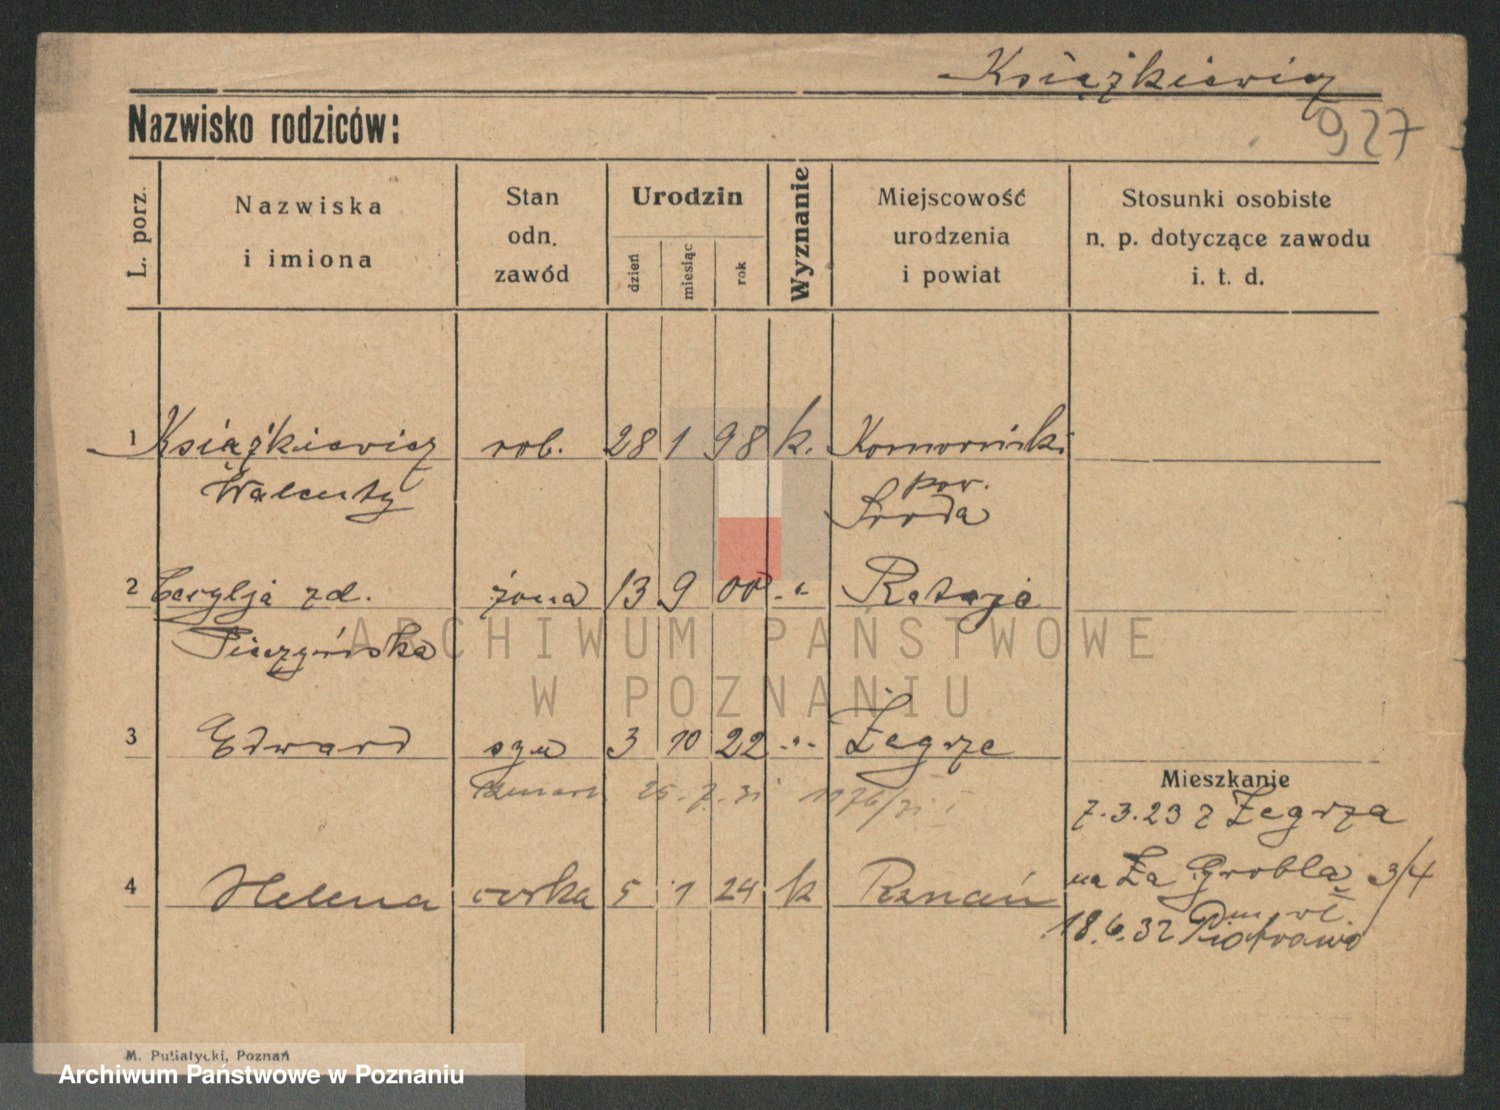 Książkiewicz
Nazwisko rodziców:
927
L. porz.
Nazwiska
i imiona
Stan
odn.
zawód
Urodzin
dzień
miesiąc
rok
Wyznanie
Miejscowość
urodzenia
i powiat
Stosunki osobiste
n. p. dotyczące zawodu
i. t. d.
1 Książkiewicz rob. 28 1 98 k. Komorniki
Walenty pow.
Środa
2 Cecylja zd. żona 13 9 00 -"- Rataje
Pieczyńska
ARCHIWUM PAŃSTWOWE
W POZNANIU
3 Edward syn 3 10 22 -"- Żegrze
zmarł 25.7.31 1176/31
Mieszkanie
7.3.23 z Żegrza
4 Helena córka 5 1 24 k Poznań
na Za Groblą 3/4
18.6.32 Piotrowo
M. Putiatycki, Poznań
Archiwum Państwowe w Poznaniu